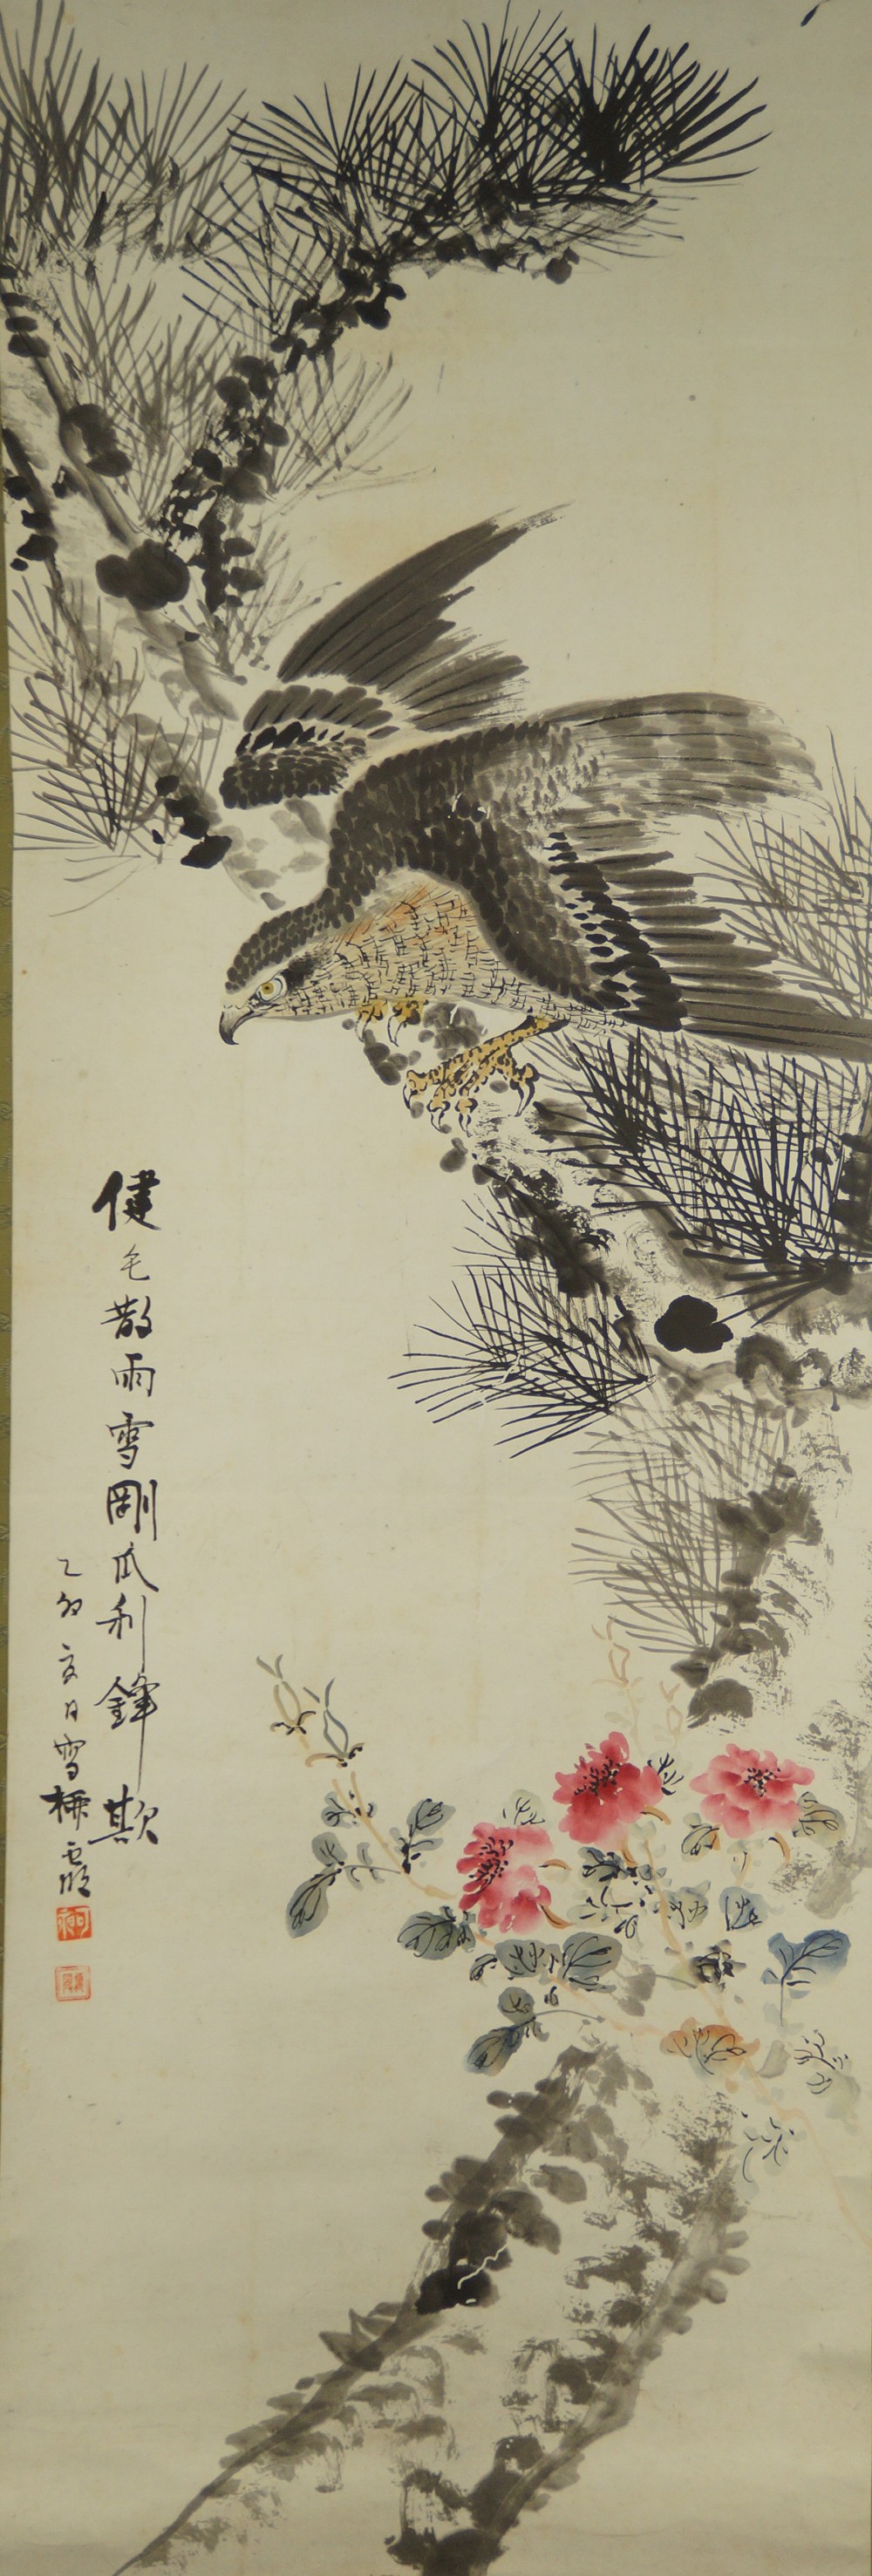 健毛散雨雪剛爪利鋒欺
乙卯夏日雪栖